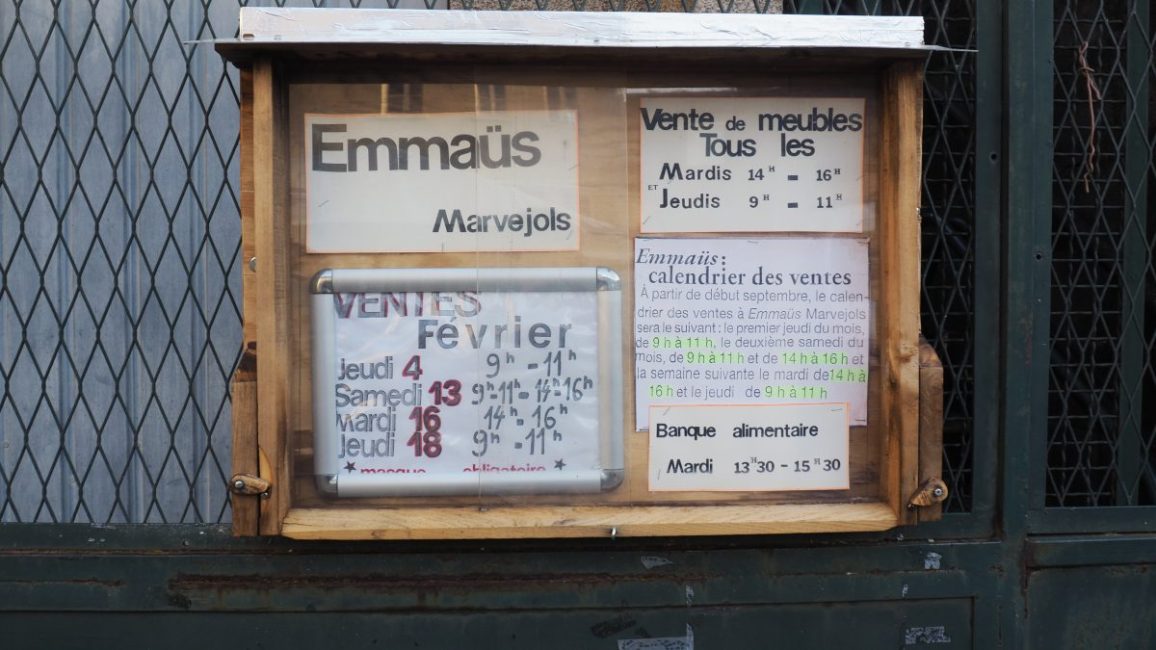 Emmaüs
Marvejols
VENTES
Février
Jeudi 4 9h - 11h
Samedi 13 9h-11h - 14h-16h
Mardi 16 14h - 16h
Jeudi 18 9h - 11h
★ masque obligatoire ★
Vente de meubles
Tous les
Mardis 14H - 16H
ET Jeudis 9H - 11H
Emmaüs :
calendrier des ventes
À partir de début septembre, le calen-
drier des ventes à Emmaüs Marvejols
sera le suivant : le premier jeudi du mois,
de 9 h à 11 h, le deuxième samedi du
mois, de 9 h à 11 h et de 14 h à 16 h et
la semaine suivante le mardi de 14 h à
16 h et le jeudi de 9 h à 11 h
Banque alimentaire
Mardi 13H30 - 15H30